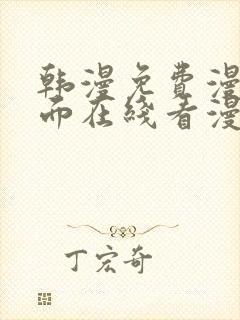 韩漫免费漫
而在线看漫
丁宏奇